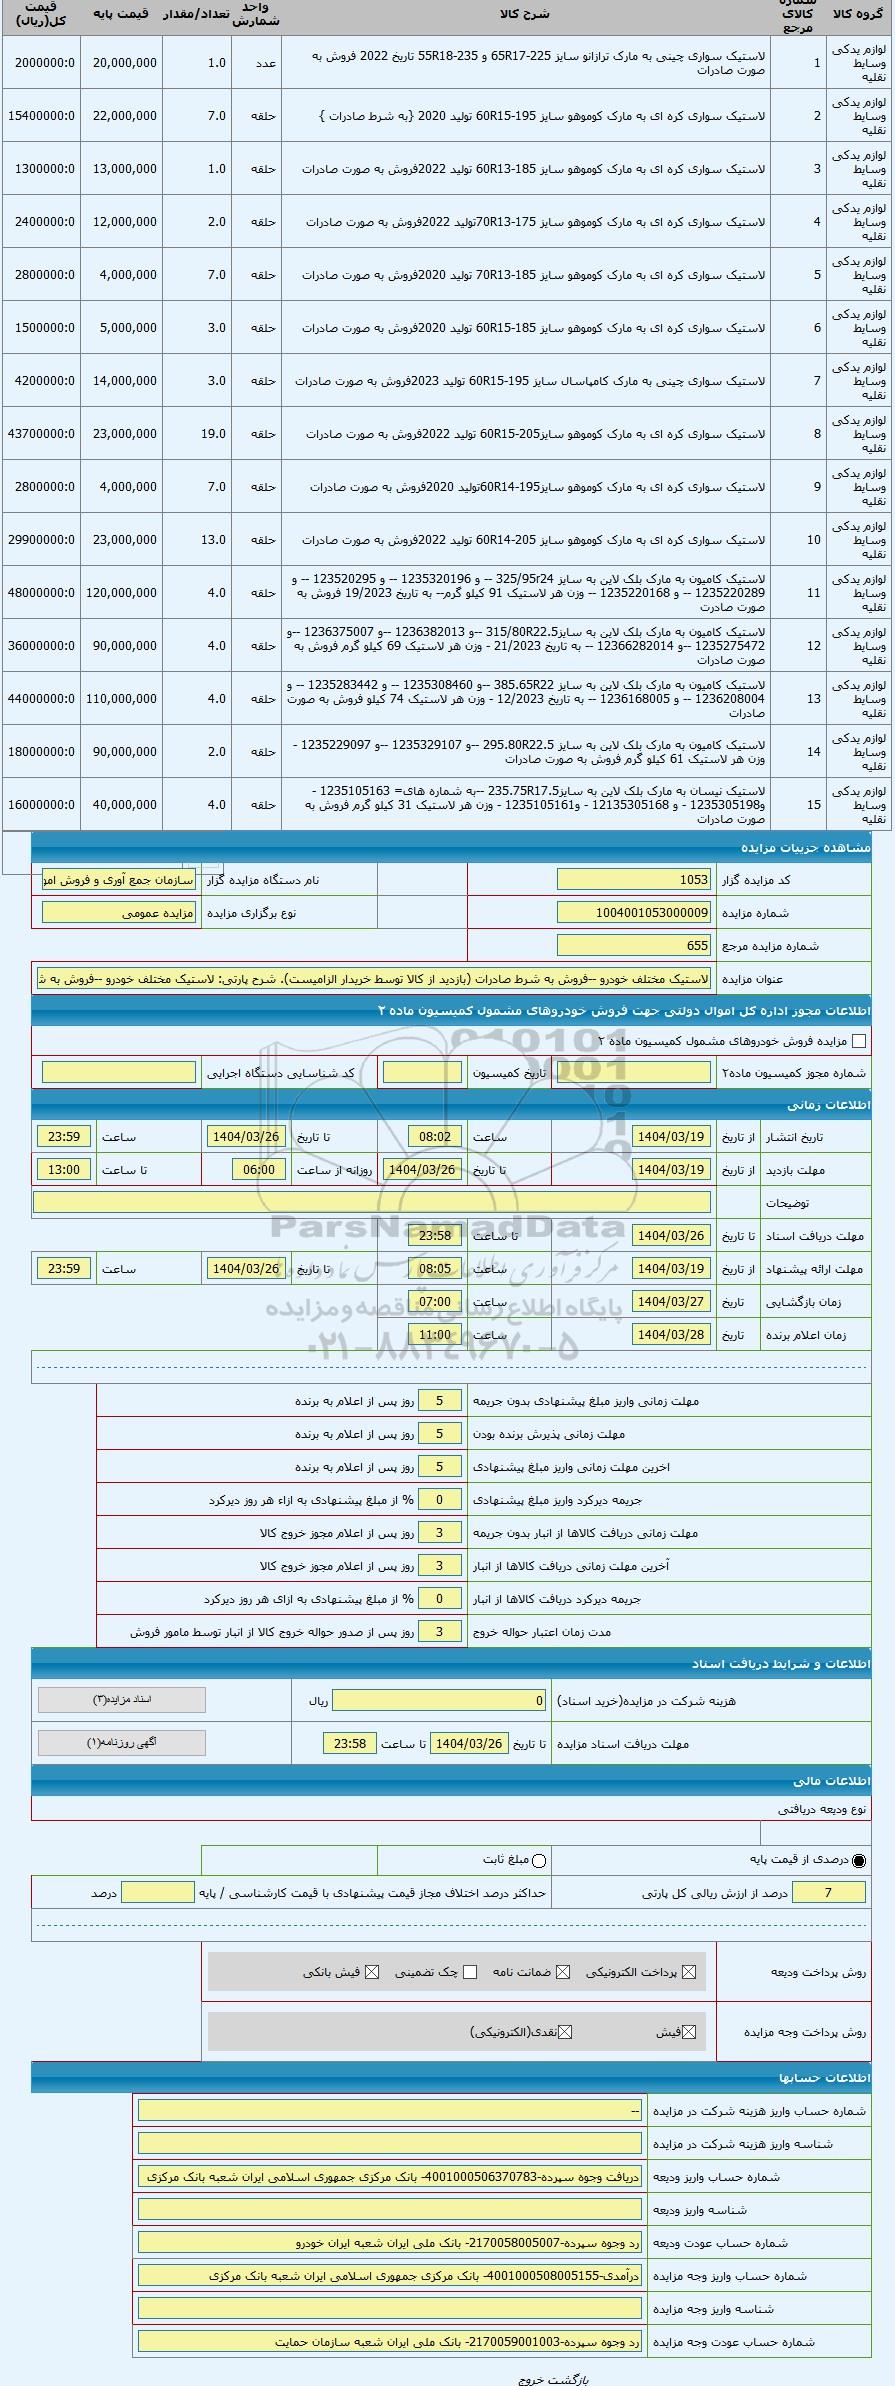 گروه کالا شماره کالای مرجع شرح کالا واحد شمارش تعداد/مقدار قیمت پایه قیمت کل(ریال)
لوازم یدکی وسایط نقلیه 1 لاستیک سواری چینی به مارک ترازانو سایز 225-65R17 و 235-55R18 تاریخ 2022 فروش به صورت صادرات عدد 1.0 20,000,000 2000000:0
لوازم یدکی وسایط نقلیه 2 لاستیک سواری کره ای به مارک کوموهو سایز 195-60R15 تولید 2020 {به شرط صادرات } حلقه 7.0 22,000,000 15400000:0
لوازم یدکی وسایط نقلیه 3 لاستیک سواری کره ای به مارک کوموهو سایز 185-60R13 تولید 2022فروش به صورت صادرات حلقه 1.0 13,000,000 1300000:0
لوازم یدکی وسایط نقلیه 4 لاستیک سواری کره ای به مارک کوموهو سایز 175-70R13تولید 2022فروش به صورت صادرات حلقه 2.0 12,000,000 2400000:0
لوازم یدکی وسایط نقلیه 5 لاستیک سواری کره ای به مارک کوموهو سایز 185-70R13 تولید 2020فروش به صورت صادرات حلقه 7.0 4,000,000 2800000:0
لوازم یدکی وسایط نقلیه 6 لاستیک سواری کره ای به مارک کوموهو سایز 185-60R15 تولید 2020فروش به صورت صادرات حلقه 3.0 5,000,000 1500000:0
لوازم یدکی وسایط نقلیه 7 لاستیک سواری چینی به مارک کامپاسال سایز 195-60R15 تولید 2023فروش به صورت صادرات حلقه 3.0 14,000,000 4200000:0
لوازم یدکی وسایط نقلیه 8 لاستیک سواری کره ای به مارک کوموهو سایز205-60R15 تولید 2022فروش به صورت صادرات حلقه 19.0 23,000,000 43700000:0
لوازم یدکی وسایط نقلیه 9 لاستیک سواری کره ای به مارک کوموهو سایز195-60R14تولید 2020فروش به صورت صادرات حلقه 7.0 4,000,000 2800000:0
لوازم یدکی وسایط نقلیه 10 لاستیک سواری کره ای به مارک کوموهو سایز 205-60R14 تولید 2022فروش به صورت صادرات حلقه 13.0 23,000,000 29900000:0
لوازم یدکی وسایط نقلیه 11 لاستیک کامیون به مارک بلک لاین به سایز 325/95r24 -- و 1235320196 -- و 123520295 -- و 1235220289 -- و 1235220168 -- وزن هر لاستیک 91 کیلو گرم-- به تاریخ 19/2023 فروش به صورت صادرت حلقه 4.0 120,000,000 48000000:0
لوازم یدکی وسایط نقلیه 12 لاستیک کامیون به مارک بلک لاین به سایز315/80R22.5 --و 1236382013 --و 1236375007 --و 1235275472 --و 12366282014 -- به تاریخ 21/2023 - وزن هر لاستیک 69 کیلو گرم فروش به صورت صادرات حلقه 4.0 90,000,000 36000000:0
لوازم یدکی وسایط نقلیه 13 لاستیک کامیون به مارک بلک لاین به سایز 385.65R22 --و 1235308460 -- و 1235283442 -- و 1236208004 -- و 1236168005 -- به تاریخ 12/2023 - وزن هر لاستیک 74 کیلو فروش به صورت صادرات حلقه 4.0 110,000,000 44000000:0
لوازم یدکی وسایط نقلیه 14 لاستیک کامیون به مارک بلک لاین به سایز 295.80R22.5 --و 1235329107 --و 1235229097 - وزن هر لاستیک 61 کیلو گرم فروش به صورت صادرات حلقه 2.0 90,000,000 18000000:0
لوازم یدکی وسایط نقلیه 15 لاستیک نیسان به مارک بلک لاین به سایز235.75R17.5 --به شماره های= 1235105163 - و1235305198 - و 12135305168 - و1235105161 - وزن هر لاستیک 31 کیلو گرم فروش به صورت صادرات حلقه 4.0 40,000,000 16000000:0
مشاهده جزییات مزایده
کد مزایده گزار 1053 نام دستگاه مزایده گزار سازمان جمع آوری و فروش امو
شماره مزایده 1004001053000009 نوع برگزاری مزایده مزایده عمومی
شماره مزایده مرجع 655
عنوان مزایده لاستیک مختلف خودرو --فروش به شرط صادرات (بازدید از کالا توسط خریدار الزامیست). شرح پارتی: لاستیک مختلف خودرو --فروش به ش
اطلاعات مجوز اداره کل اموال دولتی جهت فروش خودروهای مشمول کمیسیون ماده ۲
مزایده فروش خودروهای مشمول کمیسیون ماده ۲
شماره مجوز کمیسیون ماده۲ تاریخ کمیسیون کد شناسایی دستگاه اجرایی
اطلاعات زمانی
تاریخ انتشار از تاریخ 1404/03/19 ساعت 08:02 تا تاریخ 1404/03/26 ساعت 23:59
مهلت بازدید از تاریخ 1404/03/19 تا تاریخ 1404/03/26 روزانه از ساعت 06:00 تا ساعت 13:00
توضیحات
ParsNamadData
مهلت دریافت اسناد تا تاریخ 1404/03/26 تا ساعت 23:58
مهلت ارائه پیشنهاد از تاریخ 1404/03/19 ساعت 08:05 تا تاریخ 1404/03/26 ساعت 23:59
زمان بازگشایی تاریخ 1404/03/27 ساعت 07:00
پایگاه اطلاع رسانی مناقصه و مزایده
زمان اعلام برنده تاریخ 1404/03/28 ساعت 11:00
۰۲۱-۸۸۳۴۹۶۷۰-۵
مهلت زمانی واریز مبلغ پیشنهادی بدون جریمه 5 روز پس از اعلام به برنده
مهلت زمانی پذیرش برنده بودن 5 روز پس از اعلام به برنده
اخرین مهلت زمانی واریز مبلغ پیشنهادی 5 روز پس از اعلام به برنده
جریمه دیرکرد واریز مبلغ پیشنهادی 0 % از مبلغ پیشنهادی به ازاء هر روز دیرکرد
مهلت زمانی دریافت کالاها از انبار بدون جریمه 3 روز پس از اعلام مجوز خروج کالا
آخرین مهلت زمانی دریافت کالاها از انبار 3 روز پس از اعلام مجوز خروج کالا
جریمه دیرکرد دریافت کالاها از انبار 0 % از مبلغ پیشنهادی به ازای هر روز دیرکرد
مدت زمان اعتبار حواله خروج 3 روز پس از صدور حواله خروج کالا از انبار توسط مامور فروش
اطلاعات و شرایط دریافت اسناد
هزینه شرکت در مزایده(خرید اسناد) 0 ریال اسناد مزایده(۳)
مهلت دریافت اسناد مزایده تا تاریخ 1404/03/26 تا ساعت 23:58 آگهی روزنامه(۱)
اطلاعات مالی
نوع ودیعه دریافتی
درصدی از قیمت پایه مبلغ ثابت
7 درصد از ارزش ریالی کل پارتی حداکثر درصد اختلاف مجاز قیمت پیشنهادی با قیمت کارشناسی / پایه درصد
روش پرداخت ودیعه پرداخت الکترونیکی ضمانت نامه چک تضمینی فیش بانکی
روش پرداخت وجه مزایده فیش نقدی(الکترونیکی)
اطلاعات حسابها
شماره حساب واریز هزینه شرکت در مزایده --
شناسه واریز هزینه شرکت در مزایده
شماره حساب واریز ودیعه دریافت وجوه سپرده-4001000506370783- بانک مرکزی جمهوری اسلامی ایران شعبه بانک مرکزی
شناسه واریز ودیعه
شماره حساب عودت ودیعه رد وجوه سپرده-2170058005007- بانک ملی ایران شعبه ایران خودرو
شماره حساب واریز وجه مزایده درآمدی-4001000508005155- بانک مرکزی جمهوری اسلامی ایران شعبه بانک مرکزی
شناسه واریز وجه مزایده
شماره حساب عودت وجه مزایده رد وجوه سپرده-2170059001003- بانک ملی ایران شعبه سازمان حمایت
بازگشت خروج